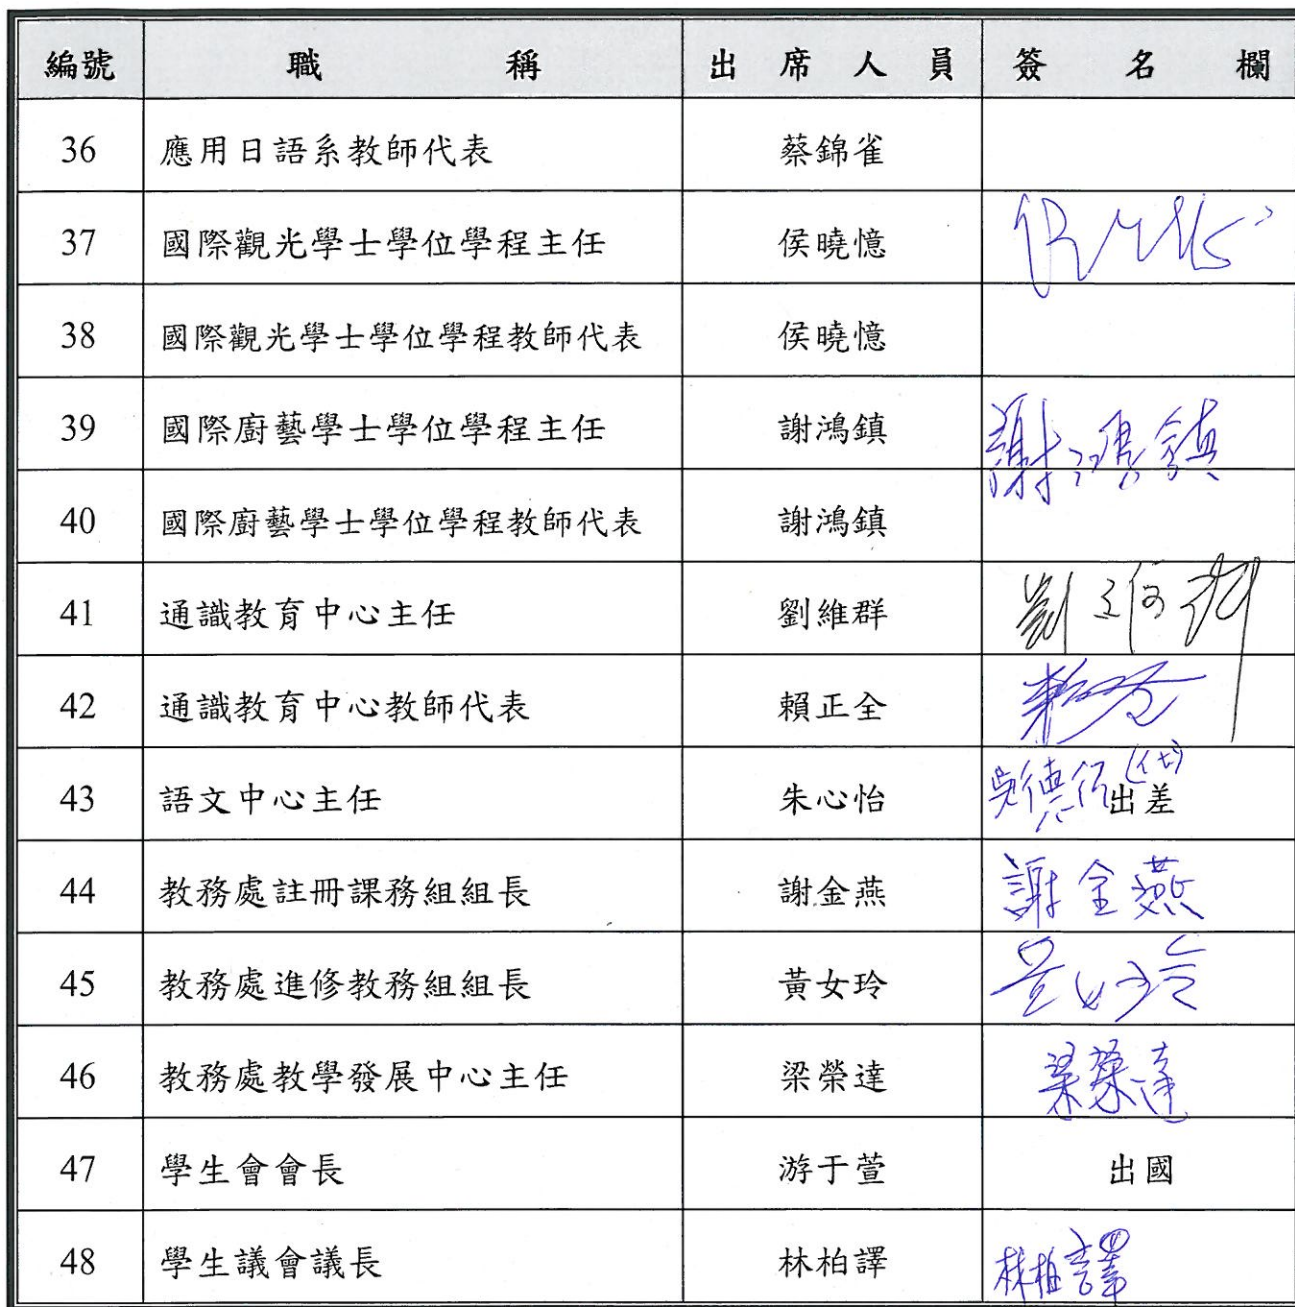 編號 職稱 出席人員 簽名欄
36 應用日語系教師代表 蔡錦雀
37 國際觀光學士學位學程主任 侯曉憶
38 國際觀光學士學位學程教師代表 侯曉憶
39 國際廚藝學士學位學程主任 謝鴻鎮 謝鴻鎮
40 國際廚藝學士學位學程教師代表 謝鴻鎮
41 通識教育中心主任 劉維群 劉維群
42 通識教育中心教師代表 賴正全
43 語文中心主任 朱心怡 (代) 出差
44 教務處註冊課務組組長 謝金燕 謝金燕
45 教務處進修教務組組長 黃女玲 黃女玲
46 教務處教學發展中心主任 梁榮達 梁榮達
47 學生會會長 游于萱 出國
48 學生議會議長 林柏譯 林柏譯